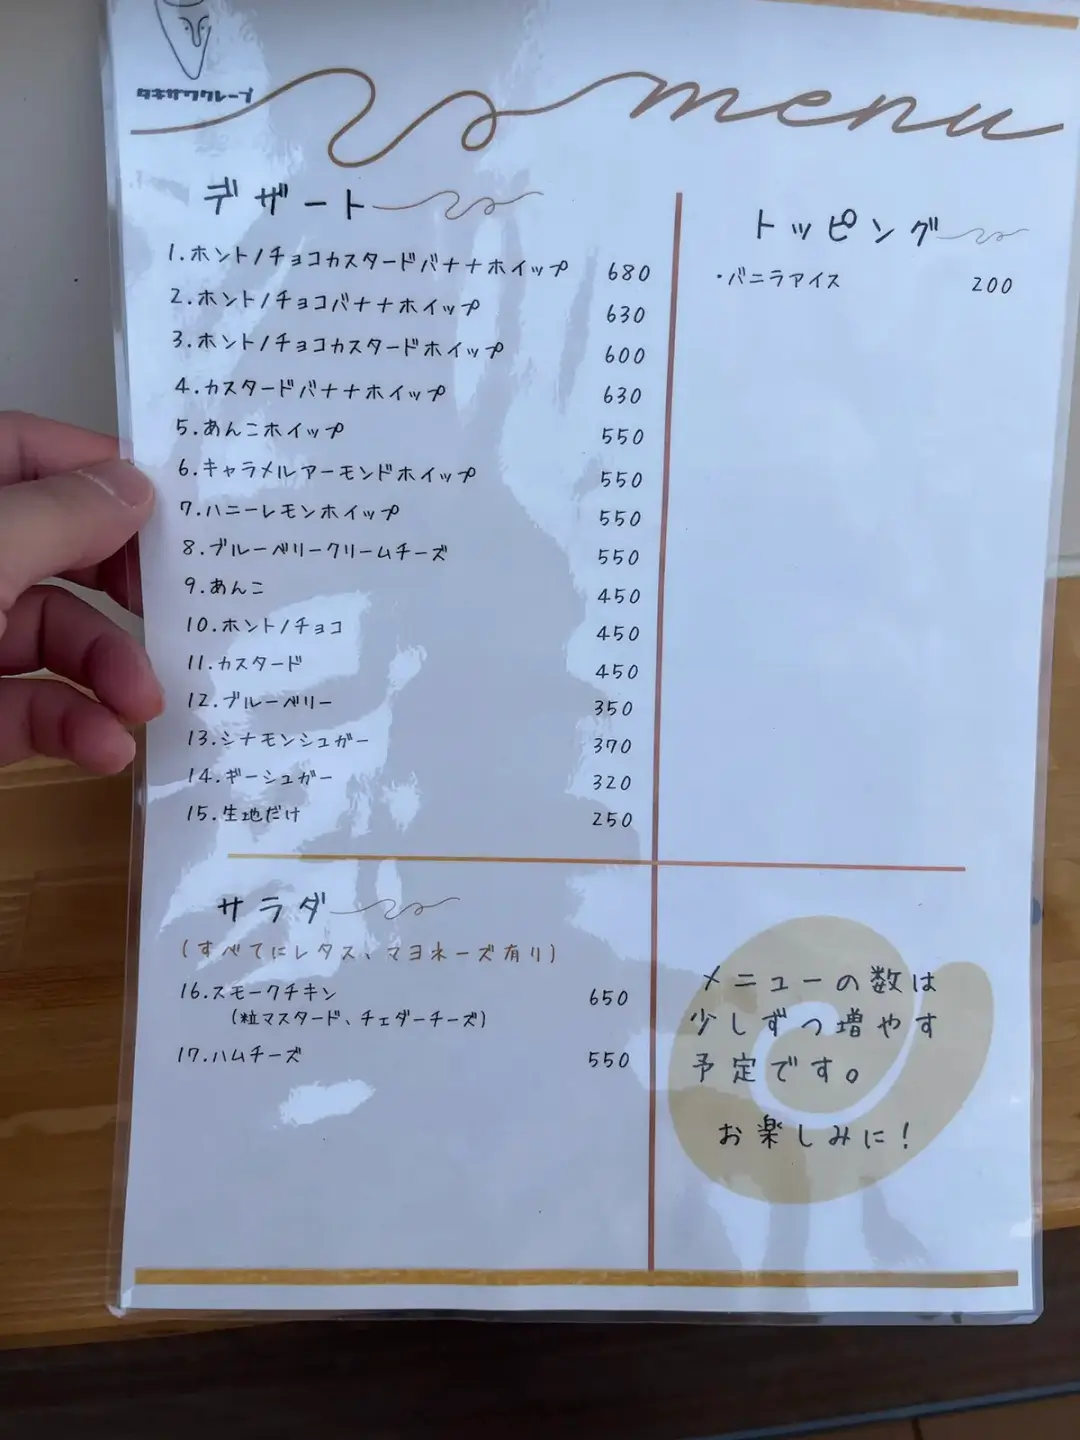 タキザワクレープ
menu
デザート
1.ホントノチョコカスタードバナナホイップ 680
2.ホントノチョコバナナホイップ 630
3.ホントノチョコカスタードホイップ 600
4.カスタードバナナホイップ 630
5.あんこホイップ 550
6.キャラメルアーモンドホイップ 550
7.ハニーレモンホイップ 550
8.ブルーベリークリームチーズ 550
9.あんこ 450
10.ホントノチョコ 450
11.カスタード 450
12.ブルーベリー 350
13.シナモンシュガー 370
14.ギーシュガー 320
15.生地だけ 250
トッピング
・バニラアイス 200
サラダ
(すべてにレタス、マヨネーズ有り)
16.スモークチキン 650
(粒マスタード、チェダーチーズ)
17.ハムチーズ 550
メニューの数は
少しずつ増やす
予定です。
お楽しみに!